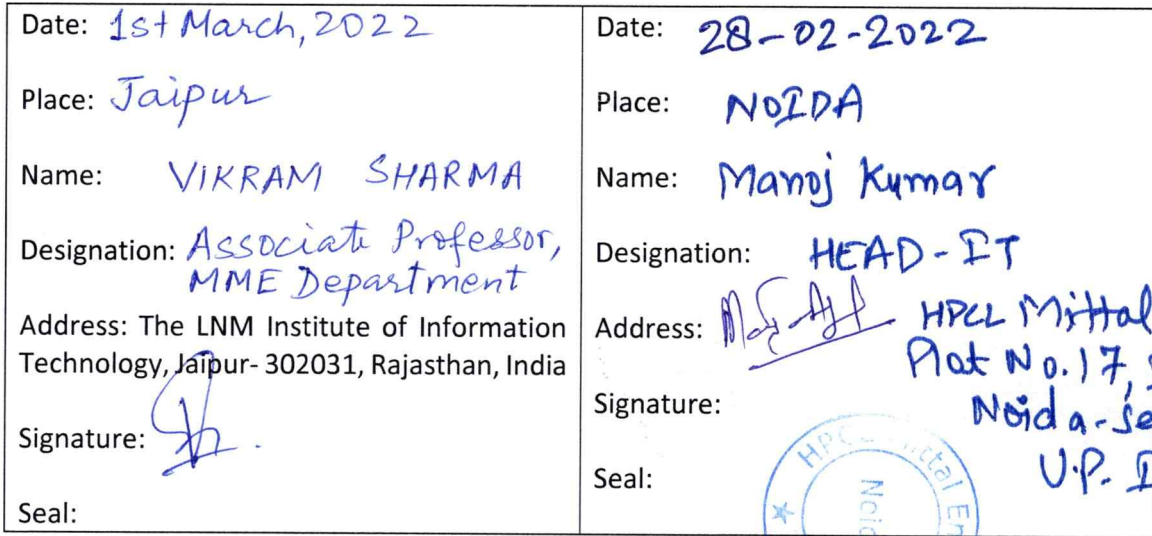 Date: 1st March, 2022
Place: Jaipur
Name: VIKRAM SHARMA
Designation: Associate Professor,
MME Department
Address: The LNM Institute of Information
Technology, Jaipur- 302031, Rajasthan, India
Signature:
Seal:
Date: 28-02-2022
Place: NOIDA
Name: Manoj Kumar
Designation: HEAD-IT
Address: HPCL Mittal
Plot No. 17,
Signature:
Noida-
Seal: U.P.
HPCL Mittal En